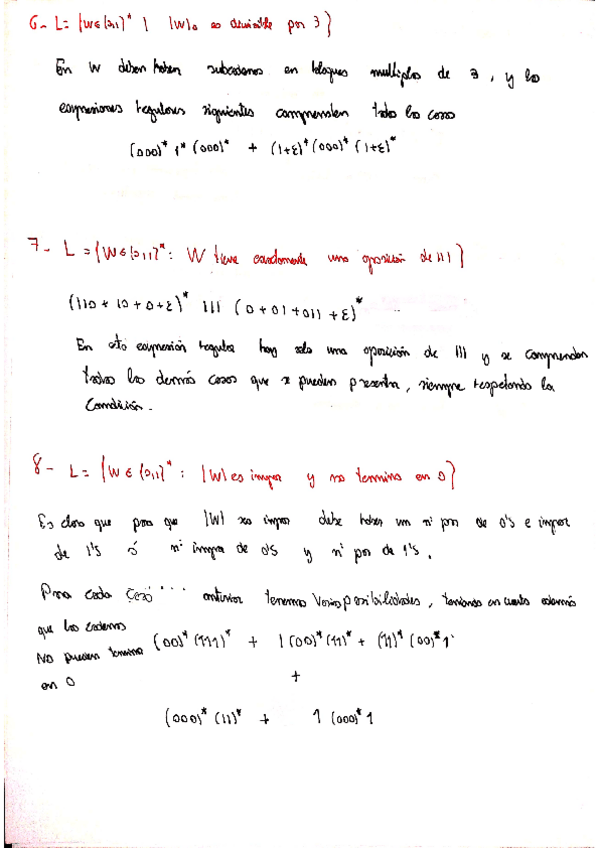 6- L= {W∈{0,1}* | |W|₀ es divisible por 3}
En W deben haber subcadenas en bloques multiplos de 3, y las
expresiones regulares siguientes comprenden todo los casos
(000)* 1* (000)* + (1+ε)* (000)* (1+ε)*
7- L = {W∈{0,1}*: W tiene exactamente una aposición de 111}
(110 + 10 + 0 + ε)* 111 (0 + 01 + 011 + ε)*
En esta expresión regular hay solo una aposición de 111 y se comprenden
todos los demás casos que se pueden presentar, siempre respetando la
Condición.
8- L= {W∈{0,1}*: |W| es impar y no termina en 0}
Es claro que para que |W| sea impar debe haber un nº par de 0's e impar
de 1's ó nº impar de 0's y nº par de 1's.
Para cada caso anterior tenemos varias posibilidades, teniendo en cuenta además
que las cadenas
No pueden terminar
en 0
(00)* (111)* + 1 (00)* (11)* + (11)* (00)* 1
+
(000)* (11)* + 1 (000)* 1